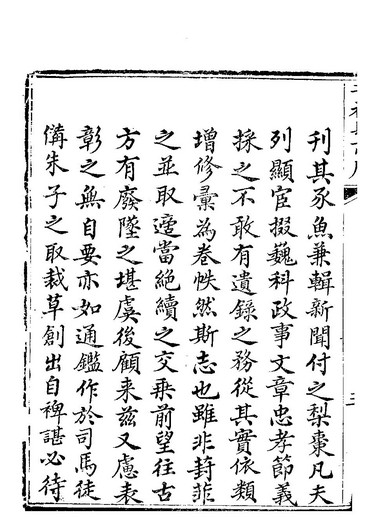 刊其豕魚兼輯新聞付之梨棗凡夫
列顯宦掇巍科政事文章忠孝節義
採之不敢有遺錄之務從其實依類
增修彙為卷帙然斯志也雖非葑菲
之並取適當絕續之交乗前望往古
方有廢墜之堪虞後顧来茲又慮表
彰之無自要亦如通鑑作於司馬徒
俻朱子之取裁草創出自裨諶必待